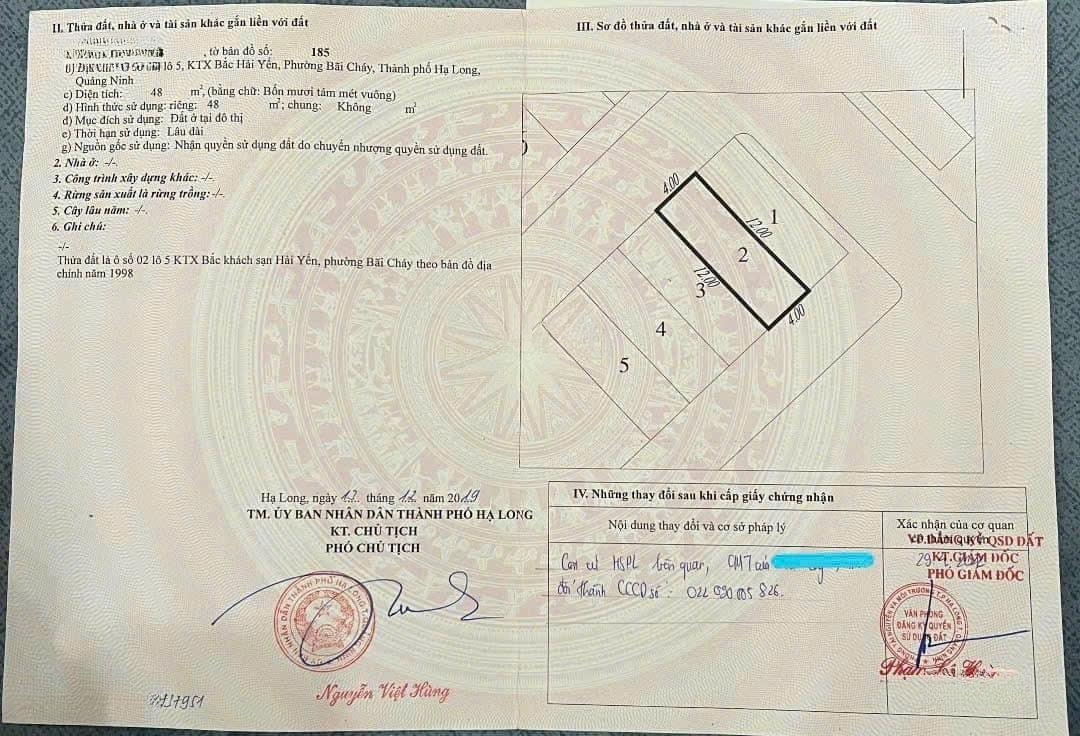 II. Thửa đất, nhà ở và tài sản khác gắn liền với đất
, tờ bản đồ số: 185
lô 5, KTX Bắc Hải Yến, Phường Bãi Cháy, Thành phố Hạ Long,
Quảng Ninh
c) Diện tích: 48 m², (bằng chữ: Bốn mươi tám mét vuông)
d) Hình thức sử dụng: riêng: 48 m²; chung: Không m²
đ) Mục đích sử dụng: Đất ở tại đô thị
e) Thời hạn sử dụng: Lâu dài
g) Nguồn gốc sử dụng: Nhận quyền sử dụng đất do chuyển nhượng quyền sử dụng đất.
2. Nhà ở: -/-.
3. Công trình xây dựng khác: -/-.
4. Rừng sản xuất là rừng trồng: -/-.
5. Cây lâu năm: -/-.
6. Ghi chú:
-/-
Thửa đất là ô số 02 lô 5 KTX Bắc khách sạn Hải Yến, phường Bãi Cháy theo bản đồ địa
chính năm 1998
Hạ Long, ngày 17 tháng 12 năm 2019
TM. ỦY BAN NHÂN DÂN THÀNH PHỐ HẠ LONG
KT. CHỦ TỊCH
PHÓ CHỦ TỊCH
Nguyễn Việt Hùng
III. Sơ đồ thửa đất, nhà ở và tài sản khác gắn liền với đất
4.00
1
12.00
2
12.00
3
4.00
4
5
IV. Những thay đổi sau khi cấp giấy chứng nhận
Nội dung thay đổi và cơ sở pháp lý
Xác nhận của cơ quan
VP.ĐĂNG KÝ QSD ĐẤT
KT.GIÁM ĐỐC
PHÓ GIÁM ĐỐC
Căn cứ HSPL liên quan, CMT của
đổi thành CCCD số:
VĂN PHÒNG
ĐĂNG KÝ QUYỀN
SỬ DỤNG ĐẤT